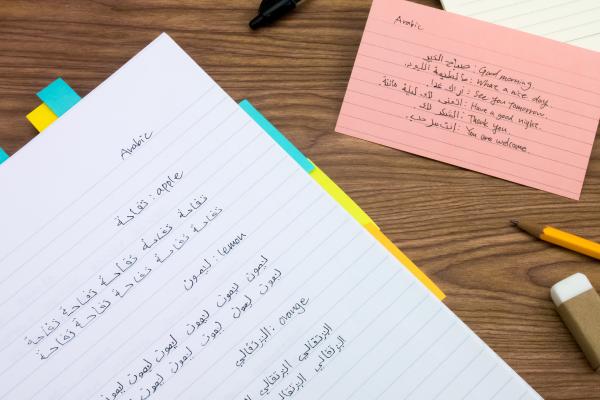 Arabic
تفاحة : apple
تفاحة تفاحة تفاحة تفاحة تفاحة
تفاحة تفاحة تفاحة تفاحة تفاحة
ليمون : lemon
ليمون ليمون ليمون ليمون ليمون
ليمون ليمون ليمون ليمون
البرتقالي : orange
البرتقالي البرتقالي البرتقالي
البرتقالي البرتقالي
Arabic
صباح الخير : Good morning.
: What a nice day.
أراك غدا. : See you tomorrow.
أتمنى لك ليلة هانئة. : Have a good night.
الشكر لك : Thank you.
: You are welcome.